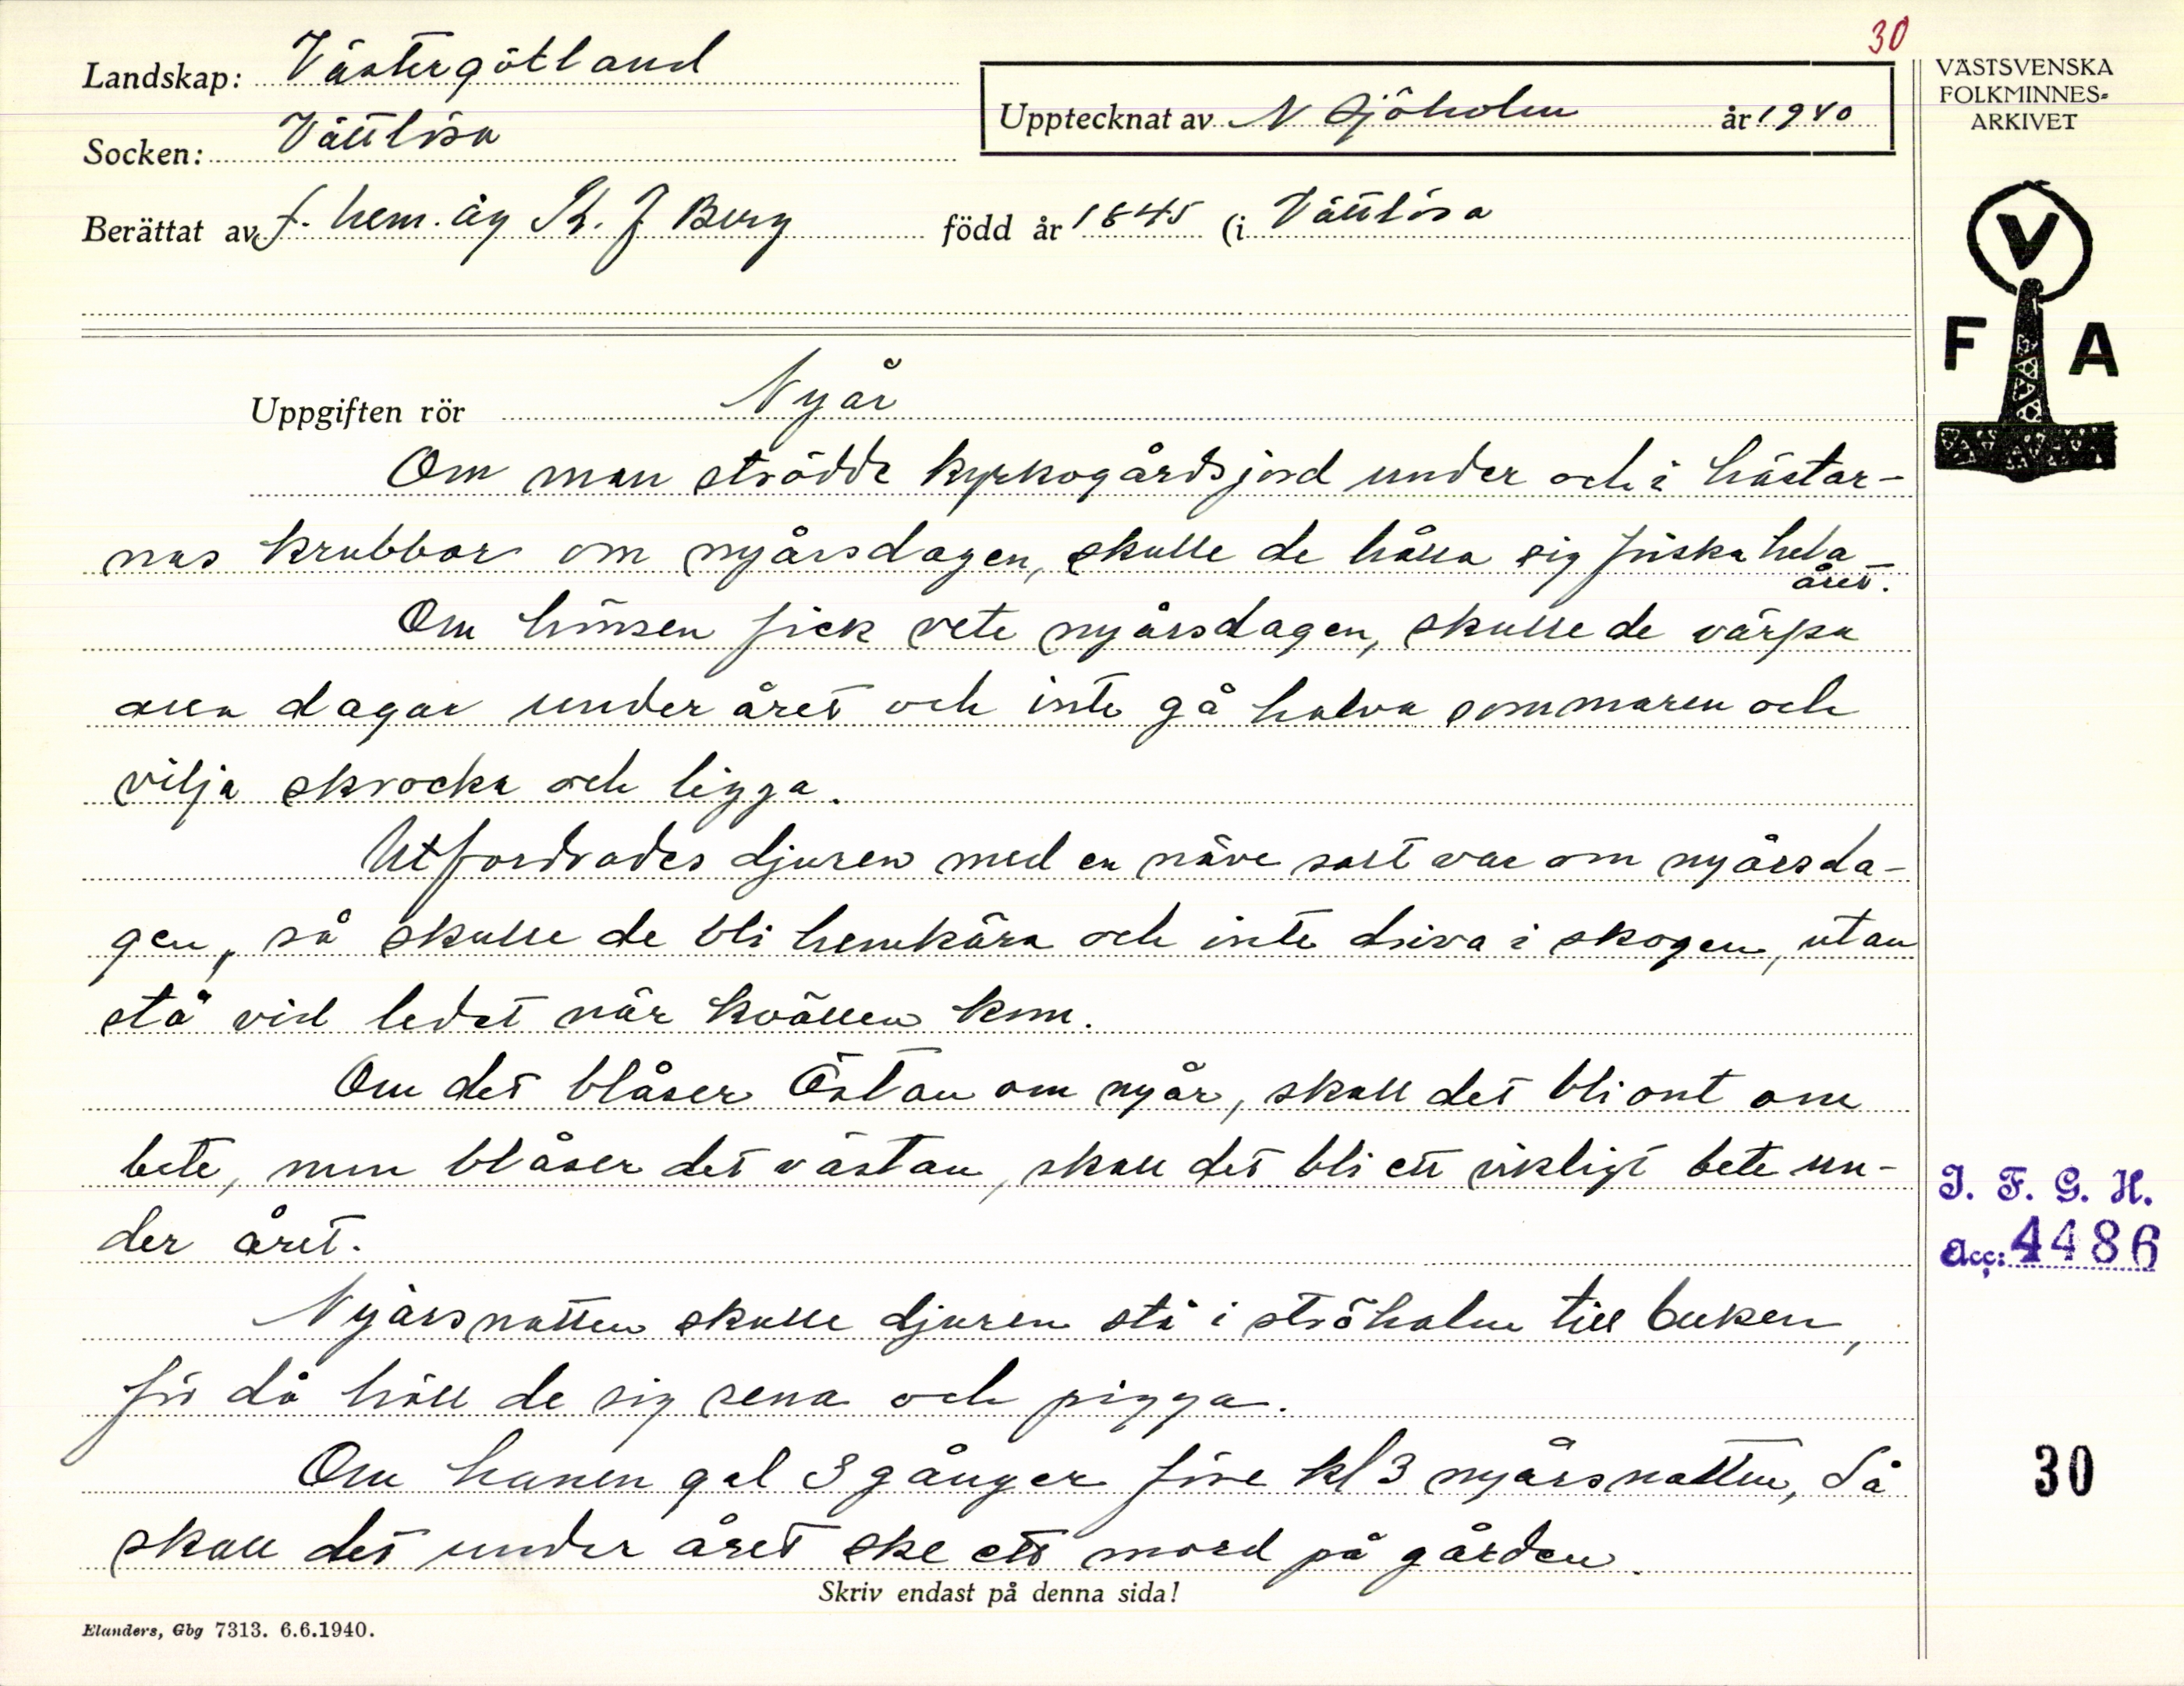 30
Landskap: Västergötland
Socken: Vättlösa
Upptecknat av N Sjöholm år 1940
Berättat av f. hem. äg J Berg född år 1845 (i Vättlösa
VÄSTSVENSKA
FOLKMINNES-
ARKIVET
V
F A
Uppgiften rör Nyår
Om man strödde kyrkogårdsjord under och i hästar-
nas krubbor om nyårsdagen, skulle de hålla sig friska hela
året.
Om hönsen fick vete nyårsdagen, skulle de värpa
alla dagar under året och inte gå halva sommaren och
vilja skrocka och ligga.
Utfordrades djuren med en näve salt var om nyårsda-
gen, så skulle de bli hemkära och inte driva i skogen, utan
stå vid ledet när kvällen kom.
Om det blåser Östan om nyår, skall det bli ont om
bete, men blåser det västan, skall det bli ett rikligt bete un-
der året.
Nyårsnatten skulle djuren stå i ströhalm till buken,
för då höll de sig rena och pigga.
Om hanen gal 3 gånger före kl 3 nyårsnatten, då
skall det under året ske ett mord på gården.
J. F. G. H.
Acc: 4486
30
Skriv endast på denna sida!
Elanders, Gbg 7313. 6.6.1940.